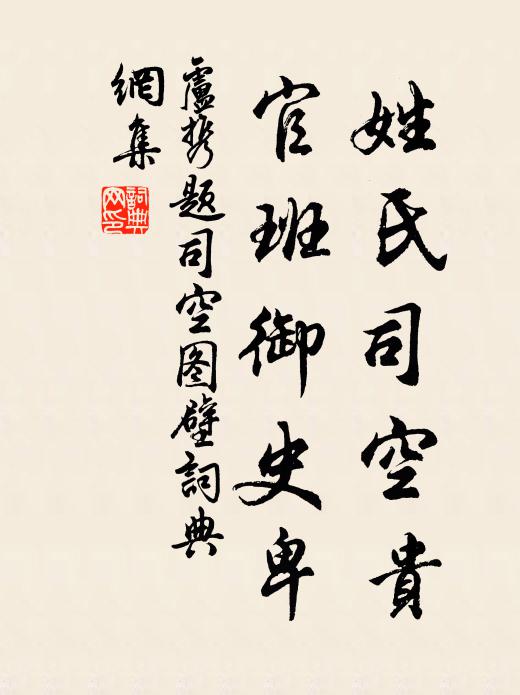 姓氏司空貴
官班御史卑
盧携題司空图壁詞典
網集
詞典
网印